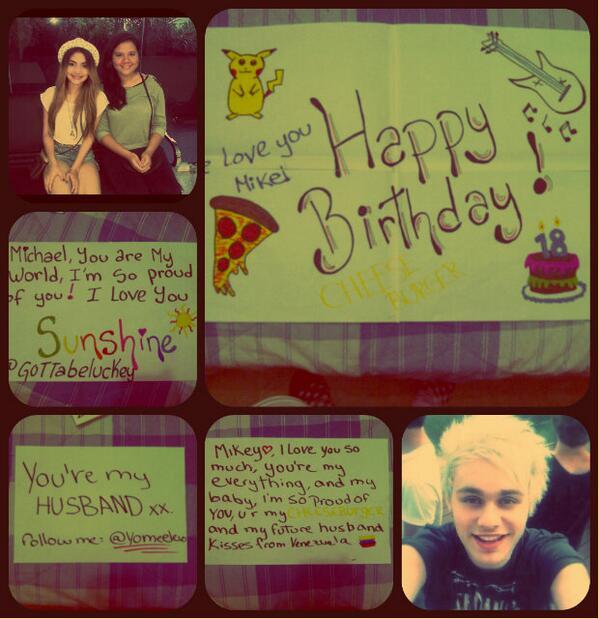 Happy
Birthday!
Love you
Mikei
CHEESE
BURGER
18
Michael, You are My
World, I'm so proud
of you! I Love You
Sunshine
@GOTTabeluckey
You're my
HUSBAND xx.
Follow me: @Yomeekuo
Mikey, I love you so
much, you're my
everything, and my
baby, i'm so proud of
you, u r my CHEESEBURGER
and my future husband
Kisses from Venezuela